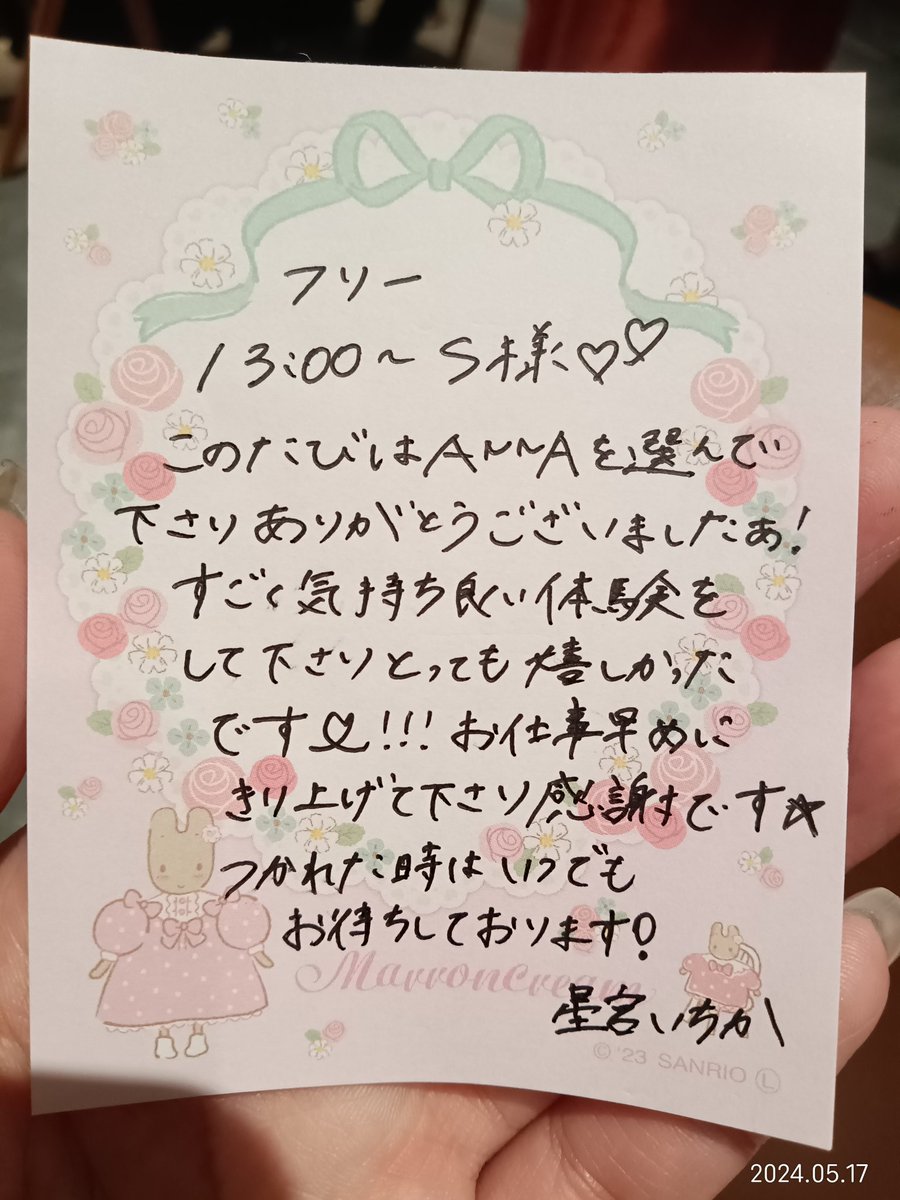 フリー
13:00～ S様♡♡
このたびはANNAを選んで
下さりありがとうございましたぁ!
すごく気持ち良い体験を
して下さりとっても嬉しかった
です♡!!! お仕事早めに
きり上げて下さり感謝です☆
つかれた時はいつでも
お待ちしております!
MarronCream
星宮いちか
© '23 SANRIO Ⓛ
2024.05.17